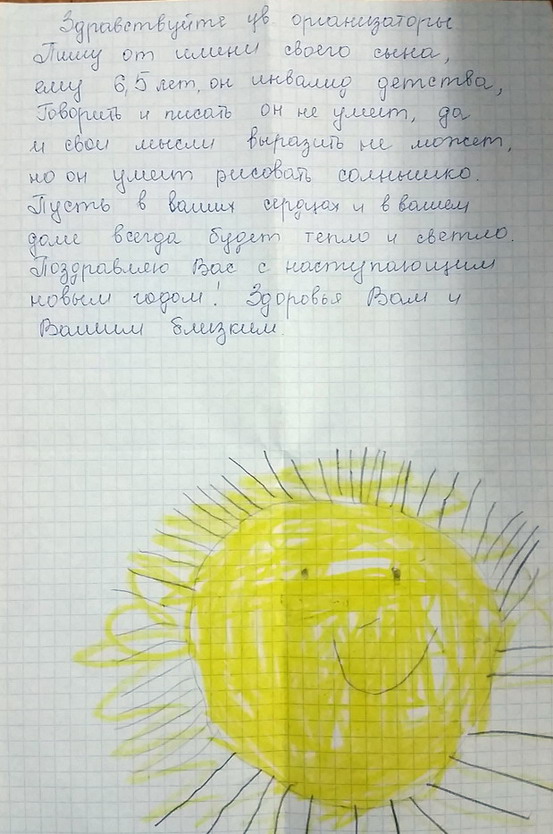 Здравствуйте ув организаторы
Пишу от имени своего сына,
ему 6,5 лет, он инвалид детства,
Говорить и писать он не умеет, да
и свои мысли выразить не может,
но он умеет рисовать солнышко.
Пусть в ваших сердцах и в вашем
доме всегда будет тепло и светло.
Поздравляю Вас с наступающим
новым годом! Здоровья Вам и
Вашим близким.